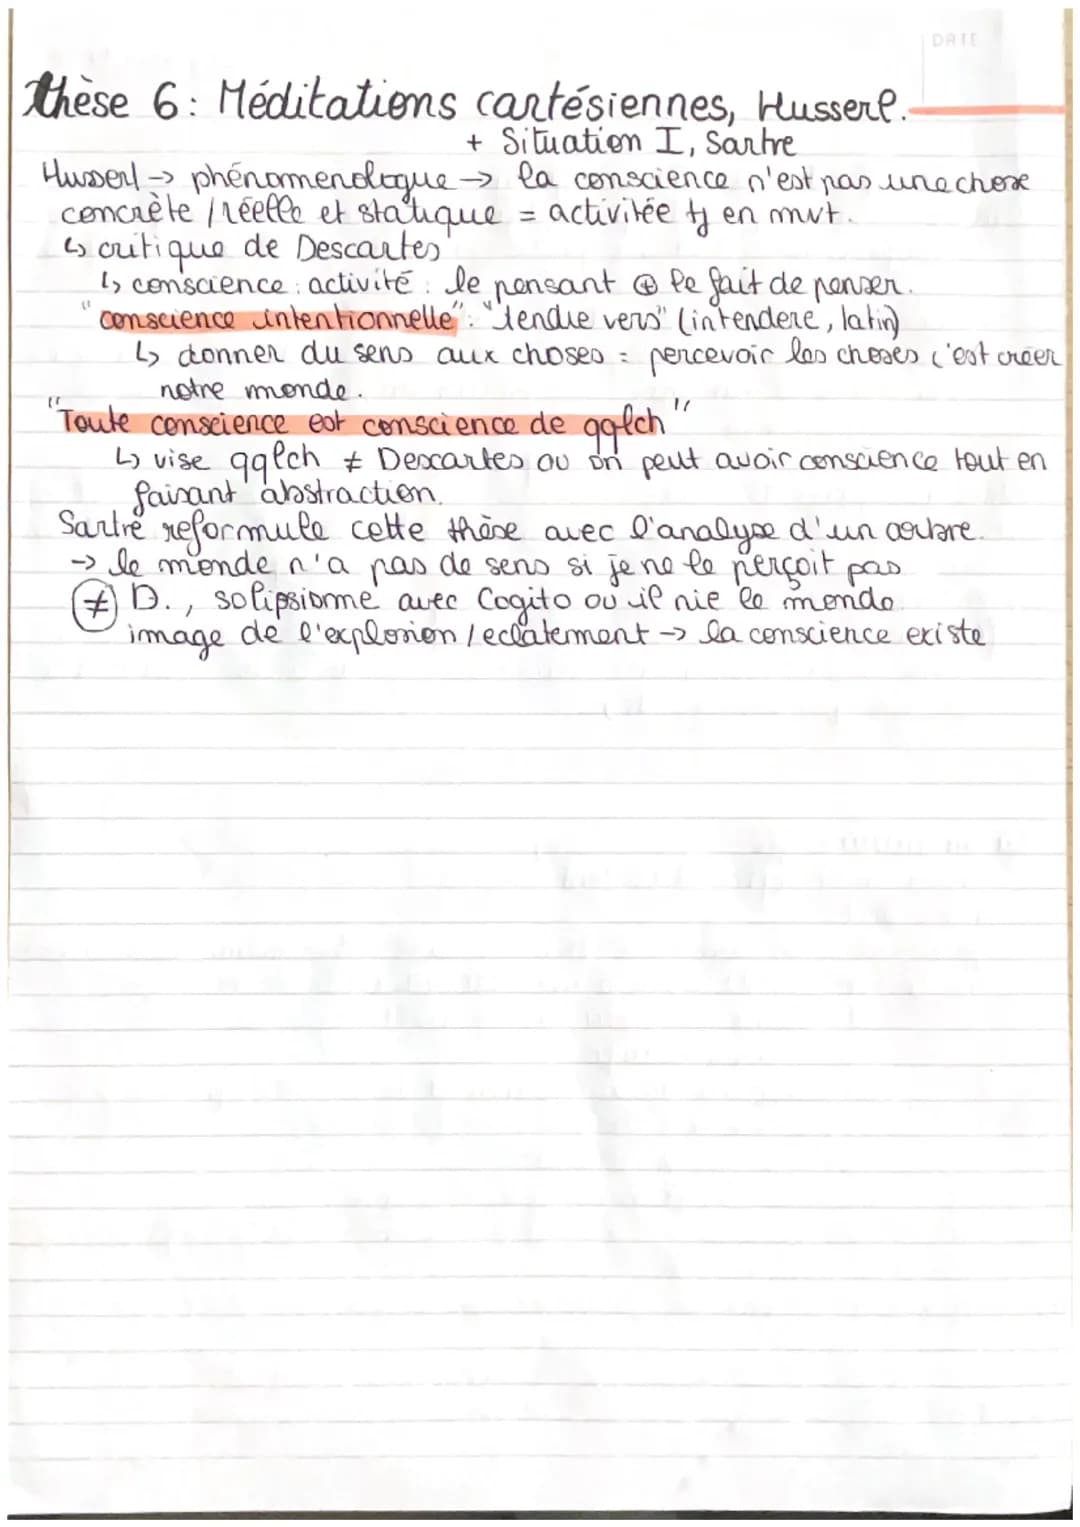 DATE
thèse 6 : Méditations cartésiennes, Husserl.
+ Situation I, Sartre
Husserl -> phénomenologue -> la conscience n'est pas une chose
concrète / réelle et statique = activitée tj en mvt.
↳ critique de Descartes
↳ conscience : activité : le pensant ⊕ le fait de penser.
"conscience intentionnelle" : "tendue vers" (intendere, latin)
↳ donner du sens aux choses = percevoir les choses c'est créer
notre monde.
"Toute conscience est conscience de qqlch"
↳ vise qqlch ≠ Descartes ou on peut avoir conscience tout en
faisant abstraction.
Sartre reformule cette thèse avec l'analyse d'un arbre.
-> le monde n'a pas de sens si je ne le perçoit pas
≠ D., solipsisme avec Cogito où il nie le monde.
image de l'explosion / eclatement -> la conscience existe